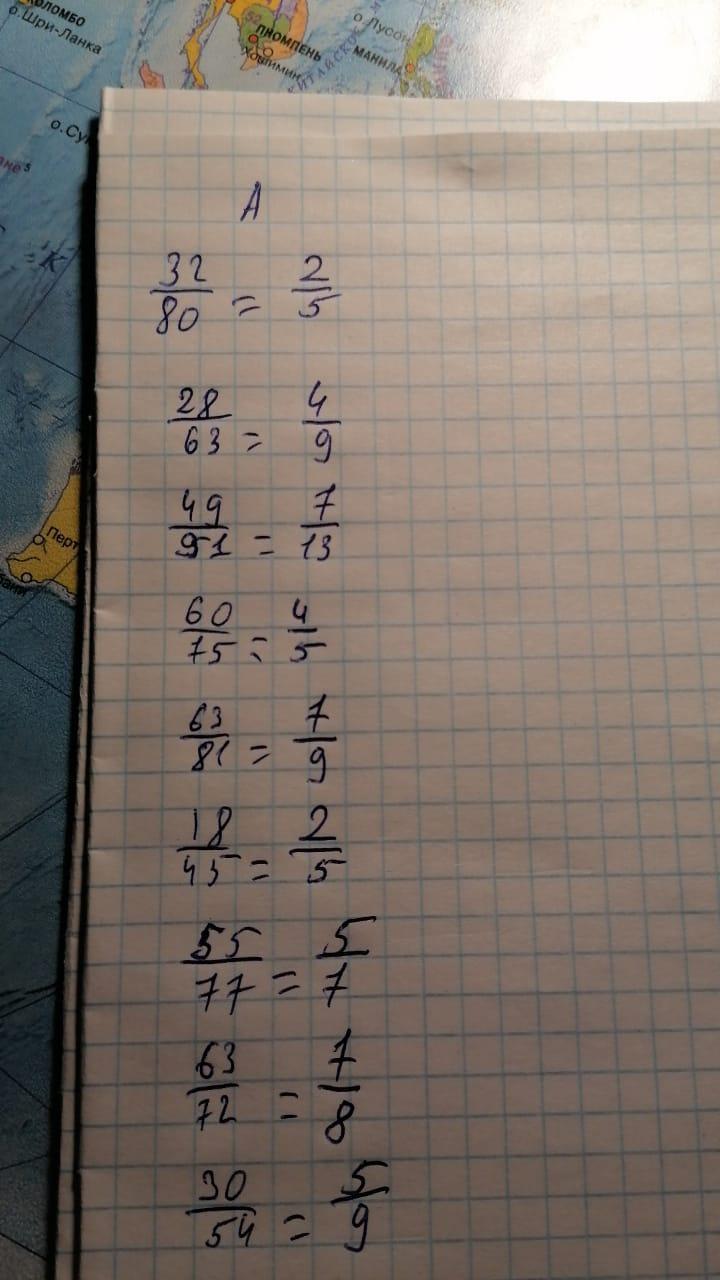 КОЛОМБО
о.Шри-Ланка
ПНОМПЕНЬ
Хошимин
о.Лусон
МАНИЛА
Перт
A
32/80 = 2/5
28/63 = 4/9
49/91 = 7/13
60/75 = 4/5
63/81 = 7/9
18/45 = 2/5
55/77 = 5/7
63/72 = 7/8
30/54 = 5/9